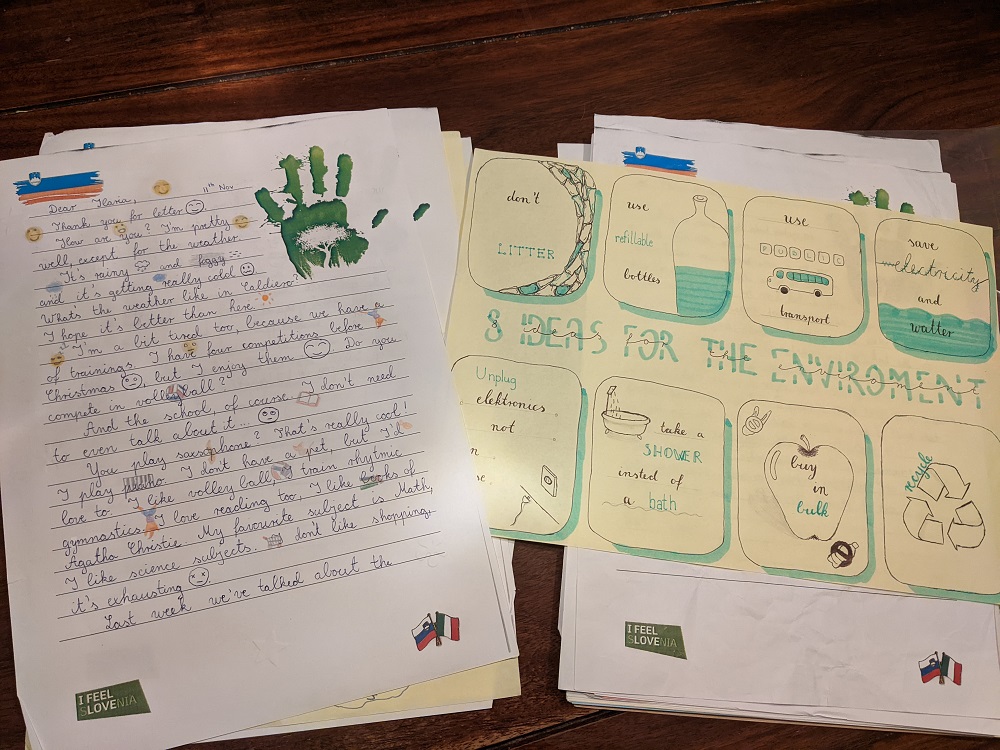 11th Nov.
Dear Ilaria,
Thank you for letter
How are you? I'm pretty
well, except for the weather.
It's rainy and foggy
and it's getting really cold
Whats the weather like in Caldiero?
I hope it's better than here.
I'm a bit tired too, because we have a
of trainings. I have four competitions before
Christmas, but I enjoy them Do you
compete in volleyball?
And the school, of course I don't need
to even talk about it...
You play saxophone? That's really cool!
I play piano. I don't have a pet, but I'd
love to. I like volleyball, I train rhytmic
gymnastics. I love reading too, I like books of
Agatha Christie. My favourite subject is Math,
I like science subjects. I don't like shopping,
it's exhausting
Last week we've talked about the
I FEEL
SLOVENIA
don't
LITTER
use
refillable
bottles
use
PUBLIC
transport
save
electricity
and
watter
8 IDEAS FOR THE ENVIROMENT
8 ideas for the enviroment
Unplug
elektronics
not
take a
SHOWER
insted of
a bath
buy
in
bulk
recycle
I FEEL
SLOVENIA